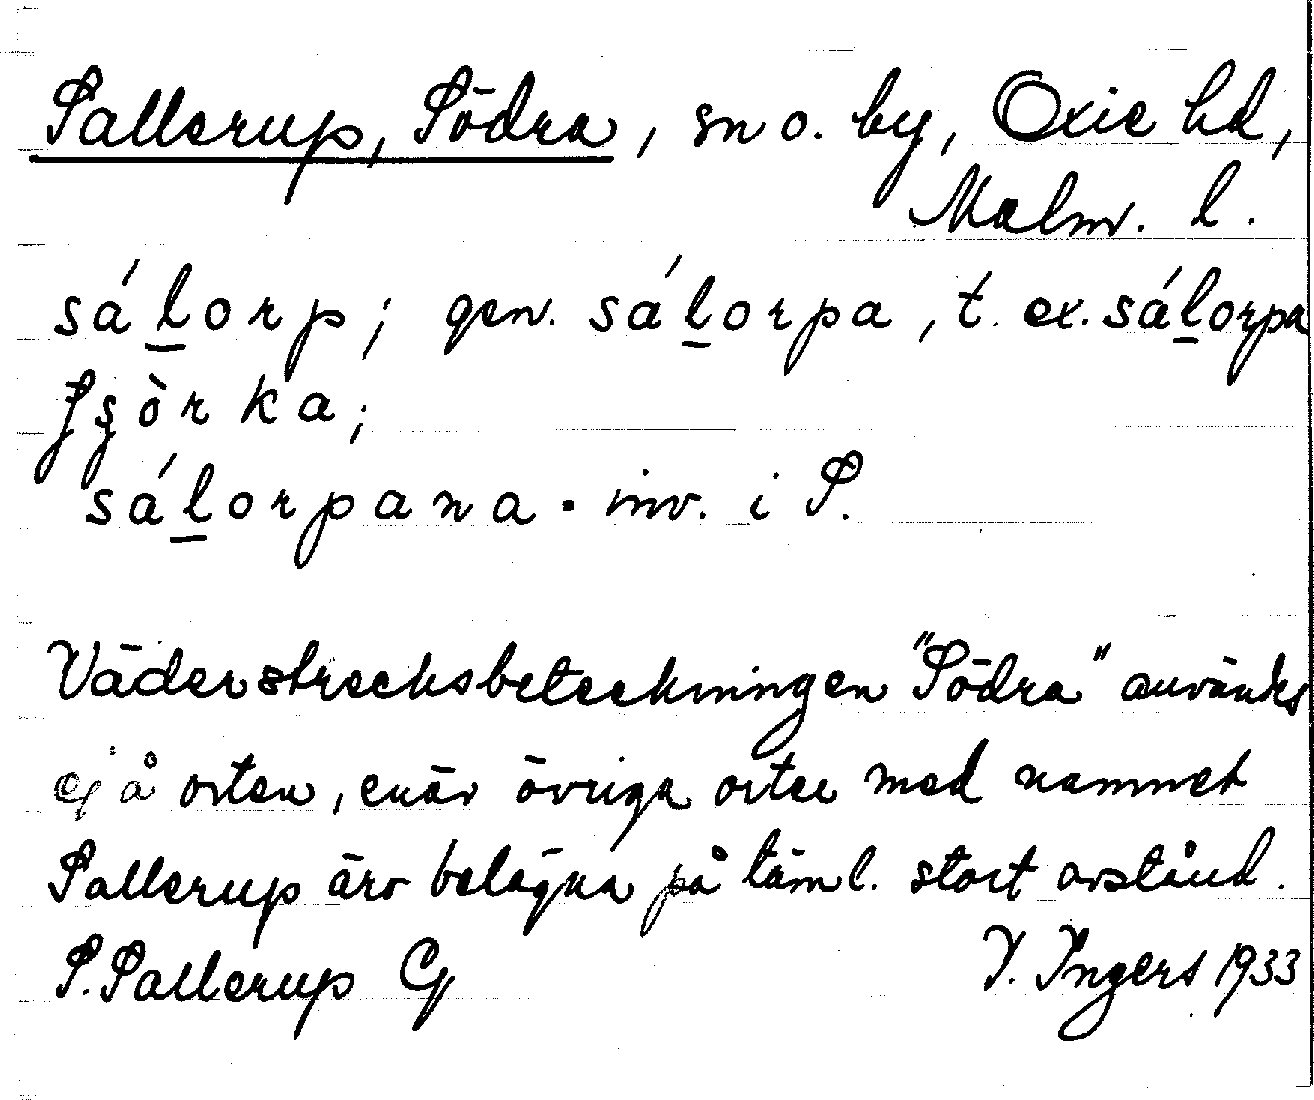 Sallerup, Södra, sn o. by, Oxie hd,
Malm. l.
sál̲orp; gen. sál̲orpa, t. ex. sál̲orpa
çòrka;
sál̲orpana · inv. i S.
Väderstrecksbeteckningen "Södra" används
ej å orten, enär övriga orter med namnet
Sallerup äro belägna på täml. stort avstånd.
S. Sallerup G I. Ingers 1933